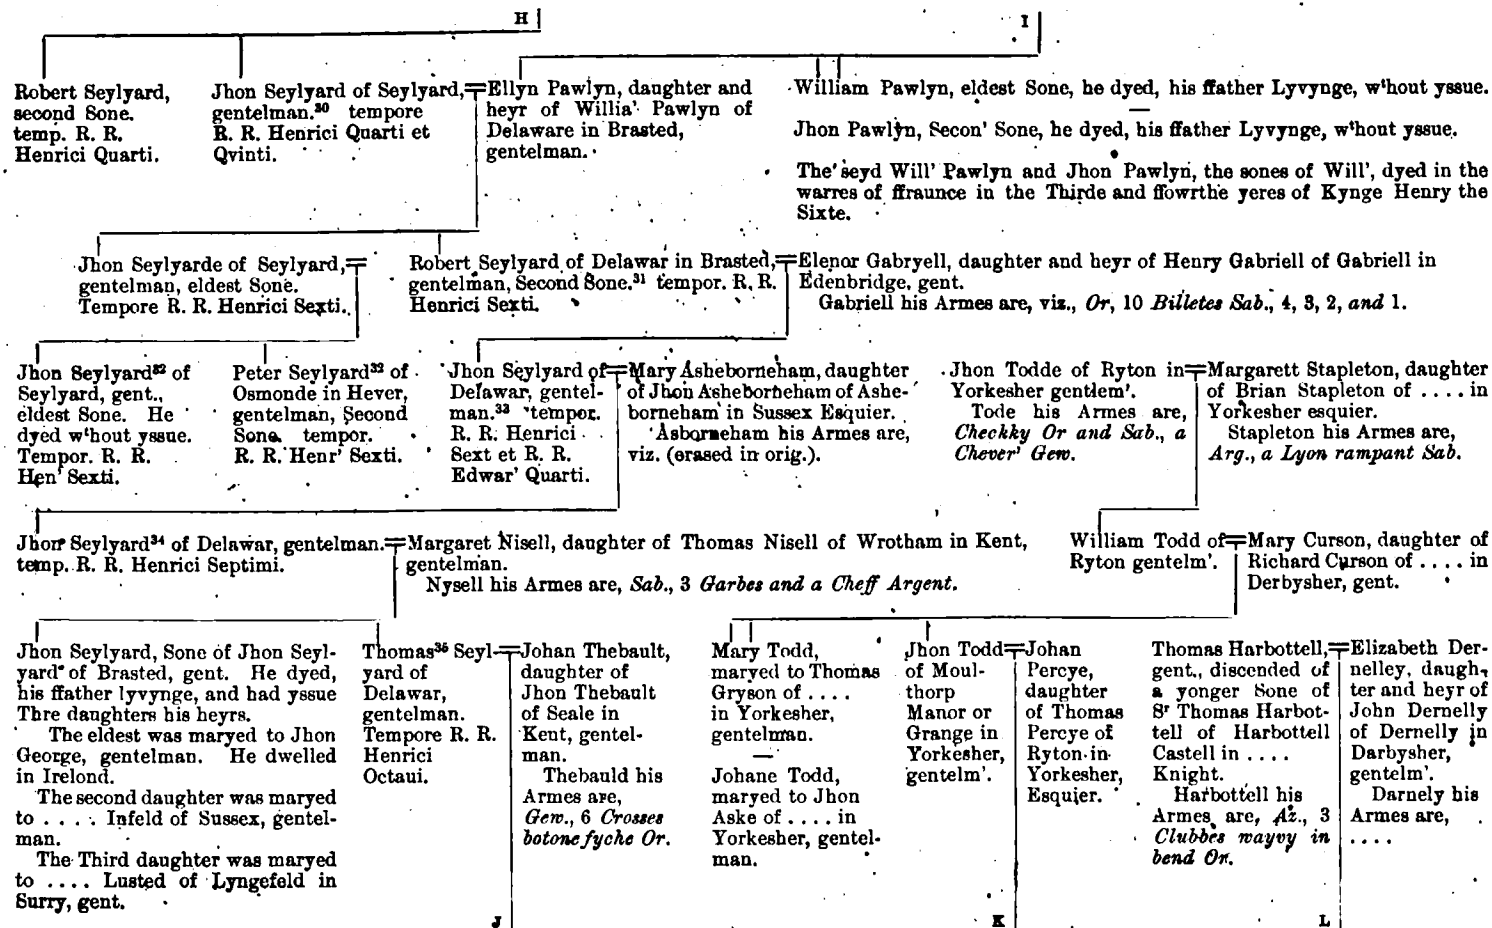 H
I
Robert Seylyard,
second Sone.
temp. R. R.
Henrici Quarti.
Jhon Seylyard of Seylyard,
gentelman.³⁰ tempore
R. R. Henrici Quarti et
Qvinti.
Ellyn Pawlyn, daughter and
heyr of Willia' Pawlyn of
Delaware in Brasted,
gentelman.
William Pawlyn, eldest Sone, he dyed, his ffather Lyvynge, wᵗhout yssue.
—
Jhon Pawlyn, Secon' Sone, he dyed, his ffather Lyvynge, wᵗhout yssue.
The seyd Will' Pawlyn and Jhon Pawlyn, the sones of Will', dyed in the
warres of ffraunce in the Thirde and ffowrthe yeres of Kynge Henry the
Sixte.
Jhon Seylyarde of Seylyard,
gentelman, eldest Sone.
Tempore R. R. Henrici Sexti.
Robert Seylyard of Delawar in Brasted,
gentelman, Second Sone.³¹ tempor. R. R.
Henrici Sexti.
Elenor Gabryell, daughter and heyr of Henry Gabriell of Gabriell in
Edenbridge, gent.
Gabriell his Armes are, viz., Or, 10 Billetes Sab., 4, 3, 2, and 1.
Jhon Seylyard³² of
Seylyard, gent.,
eldest Sone. He
dyed wᵗhout yssue.
Tempor. R. R.
Hen' Sexti.
Peter Seylyard³² of
Osmonde in Hever,
gentelman, Second
Sone. tempor.
R. R. Henr' Sexti.
Jhon Seylyard of
Delawar, gentel-
man.³³ tempor.
R. R. Henrici
Sext et R. R.
Edwar' Quarti.
Mary Asheborneham, daughter
of Jhon Asheborneham of Ashe-
borneham in Sussex Esquier.
Asborneham his Armes are,
viz. (erased in orig.).
Jhon Todde of Ryton in
Yorkesher gentlem'.
Tode his Armes are,
Checkky Or and Sab., a
Chever' Gew.
Margarett Stapleton, daughter
of Brian Stapleton of .... in
Yorkesher esquier.
Stapleton his Armes are,
Arg., a Lyon rampant Sab.
Jhon Seylyard³⁴ of Delawar, gentelman.
temp. R. R. Henrici Septimi.
Margaret Nisell, daughter of Thomas Nisell of Wrotham in Kent,
gentelman.
Nysell his Armes are, Sab., 3 Garbes and a Cheff Argent.
William Todd of
Ryton gentelm'.
Mary Curson, daughter of
Richard Curson of .... in
Derbysher, gent.
Jhon Seylyard, Sone of Jhon Seyl-
yard of Brasted, gent. He dyed,
his ffather lyvynge, and had yssue
Thre daughters his heyrs.
The eldest was maryed to Jhon
George, gentelman. He dwelled
in Irelond.
The second daughter was maryed
to .... Infeld of Sussex, gentel-
man.
The Third daughter was maryed
to .... Lusted of Lyngefeld in
Surry, gent.
Thomas³⁵ Seyl-
yard of
Delawar,
gentelman.
Tempore R. R.
Henrici
Octaui.
Johan Thebault,
daughter of
Jhon Thebault
of Seale in
Kent, gentel-
man.
Thebauld his
Armes are,
Gew., 6 Crosses
botone fyche Or.
Mary Todd,
maryed to Thomas
Gryson of ....
in Yorkesher,
gentelman.
—
Johane Todd,
maryed to Jhon
Aske of .... in
Yorkesher, gentel-
man.
Jhon Todd
of Moul-
thorp
Manor or
Grange in
Yorkesher,
gentelm'.
Johan
Percye,
daughter
of Thomas
Percye of
Ryton in
Yorkesher,
Esquier.
Thomas Harbottell,
gent., discended of
a yonger Sone of
Sʳ Thomas Harbot-
tell of Harbottell
Castell in ....
Knight.
Harbottell his
Armes are, Az., 3
Clubbes wayvy in
bend Or.
Elizabeth Der-
nelley, daugh-
ter and heyr of
John Dernelly
of Dernelly in
Darbysher,
gentelm'.
Darnely his
Armes are,
....
J
K
L